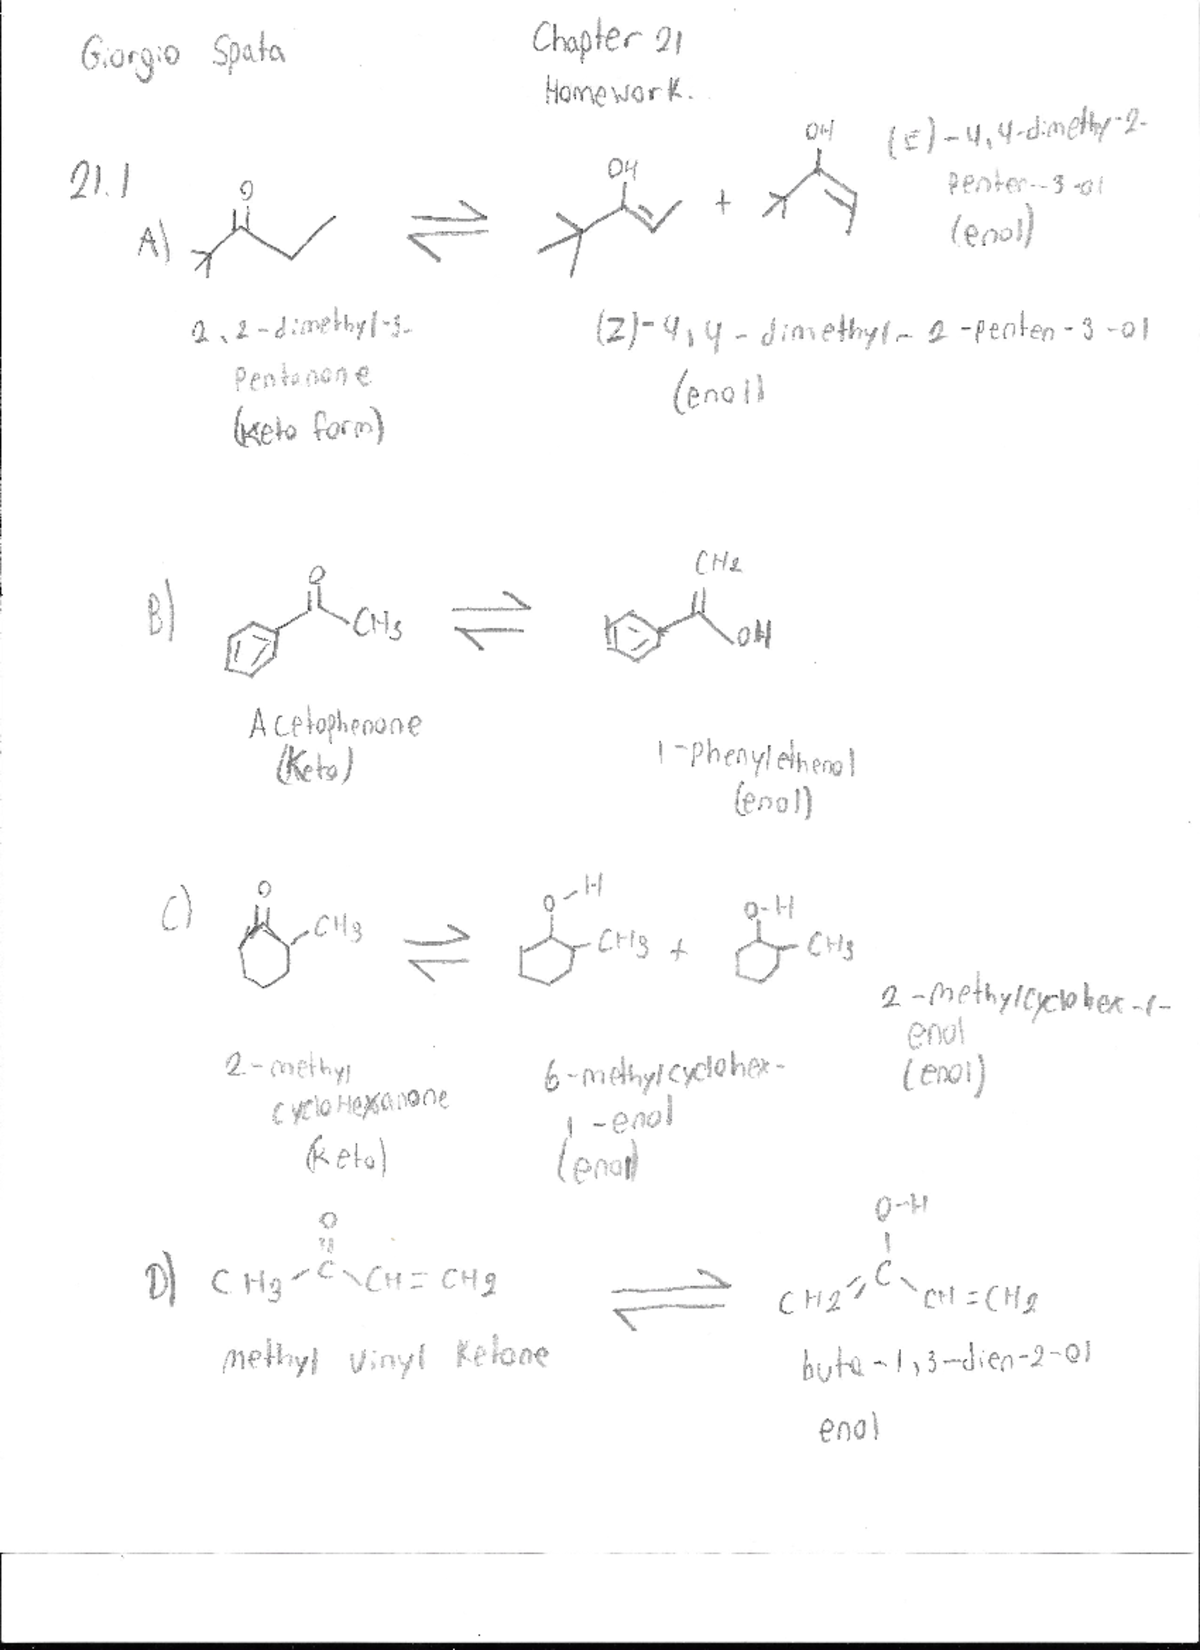 Giorgio Spata
Chapter 21
Homework.
21.1
A)
O
OH
+
OH
(E)-4,4-dimethy-2-
penten--3-ol
(enol)
2,2-dimethyl-3-
Pentanone
(Keto form)
(Z)-4,4-dimethyl-2-penten-3-ol
(enol)
B)
O
CH3
CH2
OH
Acetophenone
(Keto)
1-phenylethenol
(enol)
C)
O
CH3
O-H
CH3 +
O-H
CH3
2-methyl
cycloHexanone
(Keto)
6-methylcyclohex-
1-enol
(enol)
2-methylcyclohex-1-
enol
(enol)
D)
O
CH3-C-CH=CH2
O-H
CH2=C-CH=CH2
methyl vinyl Ketone
buta-1,3-dien-2-ol
enol